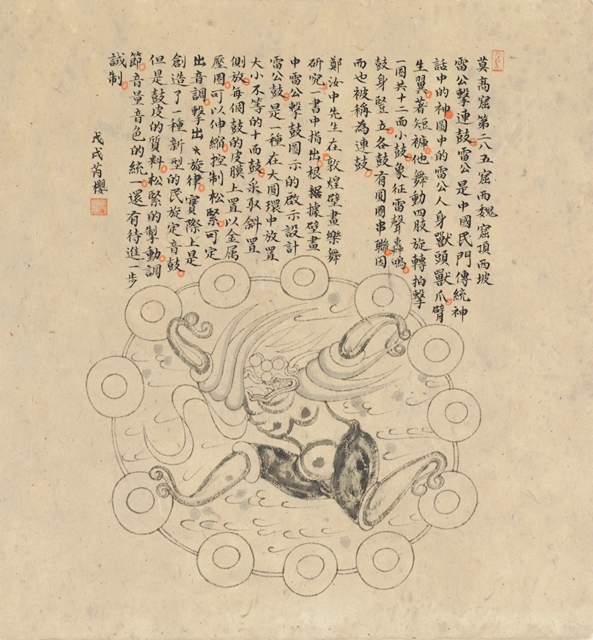 莫高窟第二八五窟西魏窟頂西坡
雷公擊連鼓雷公是中國民門傳統神
話中的神圖中的雷公人身獸頭獸爪臂
生翼著短褲他舞動四肢旋轉拍擊
一圈共十二面小鼓象征雷聲轟鳴
鼓身豎立各鼓有圓圈串聯因
而也被稱為連鼓
鄭汝中先生在敦煌壁畫樂舞
研究一書中指出根據據壁畫
中雷公擊鼓圖示的啟示設計
雷公鼓是一種在大圓環中放置
大小不等的十面鼓采取斜置
側放每個鼓的皮膜上置以金属
壓圈可以伸縮控制松緊可定
出音調擊出旋律實際上是
創造了一種新型的民族定音鼓
但是鼓皮的質料松緊的掣動調
節音量音色的統一還有待進一步
試制
戊戌芮櫻